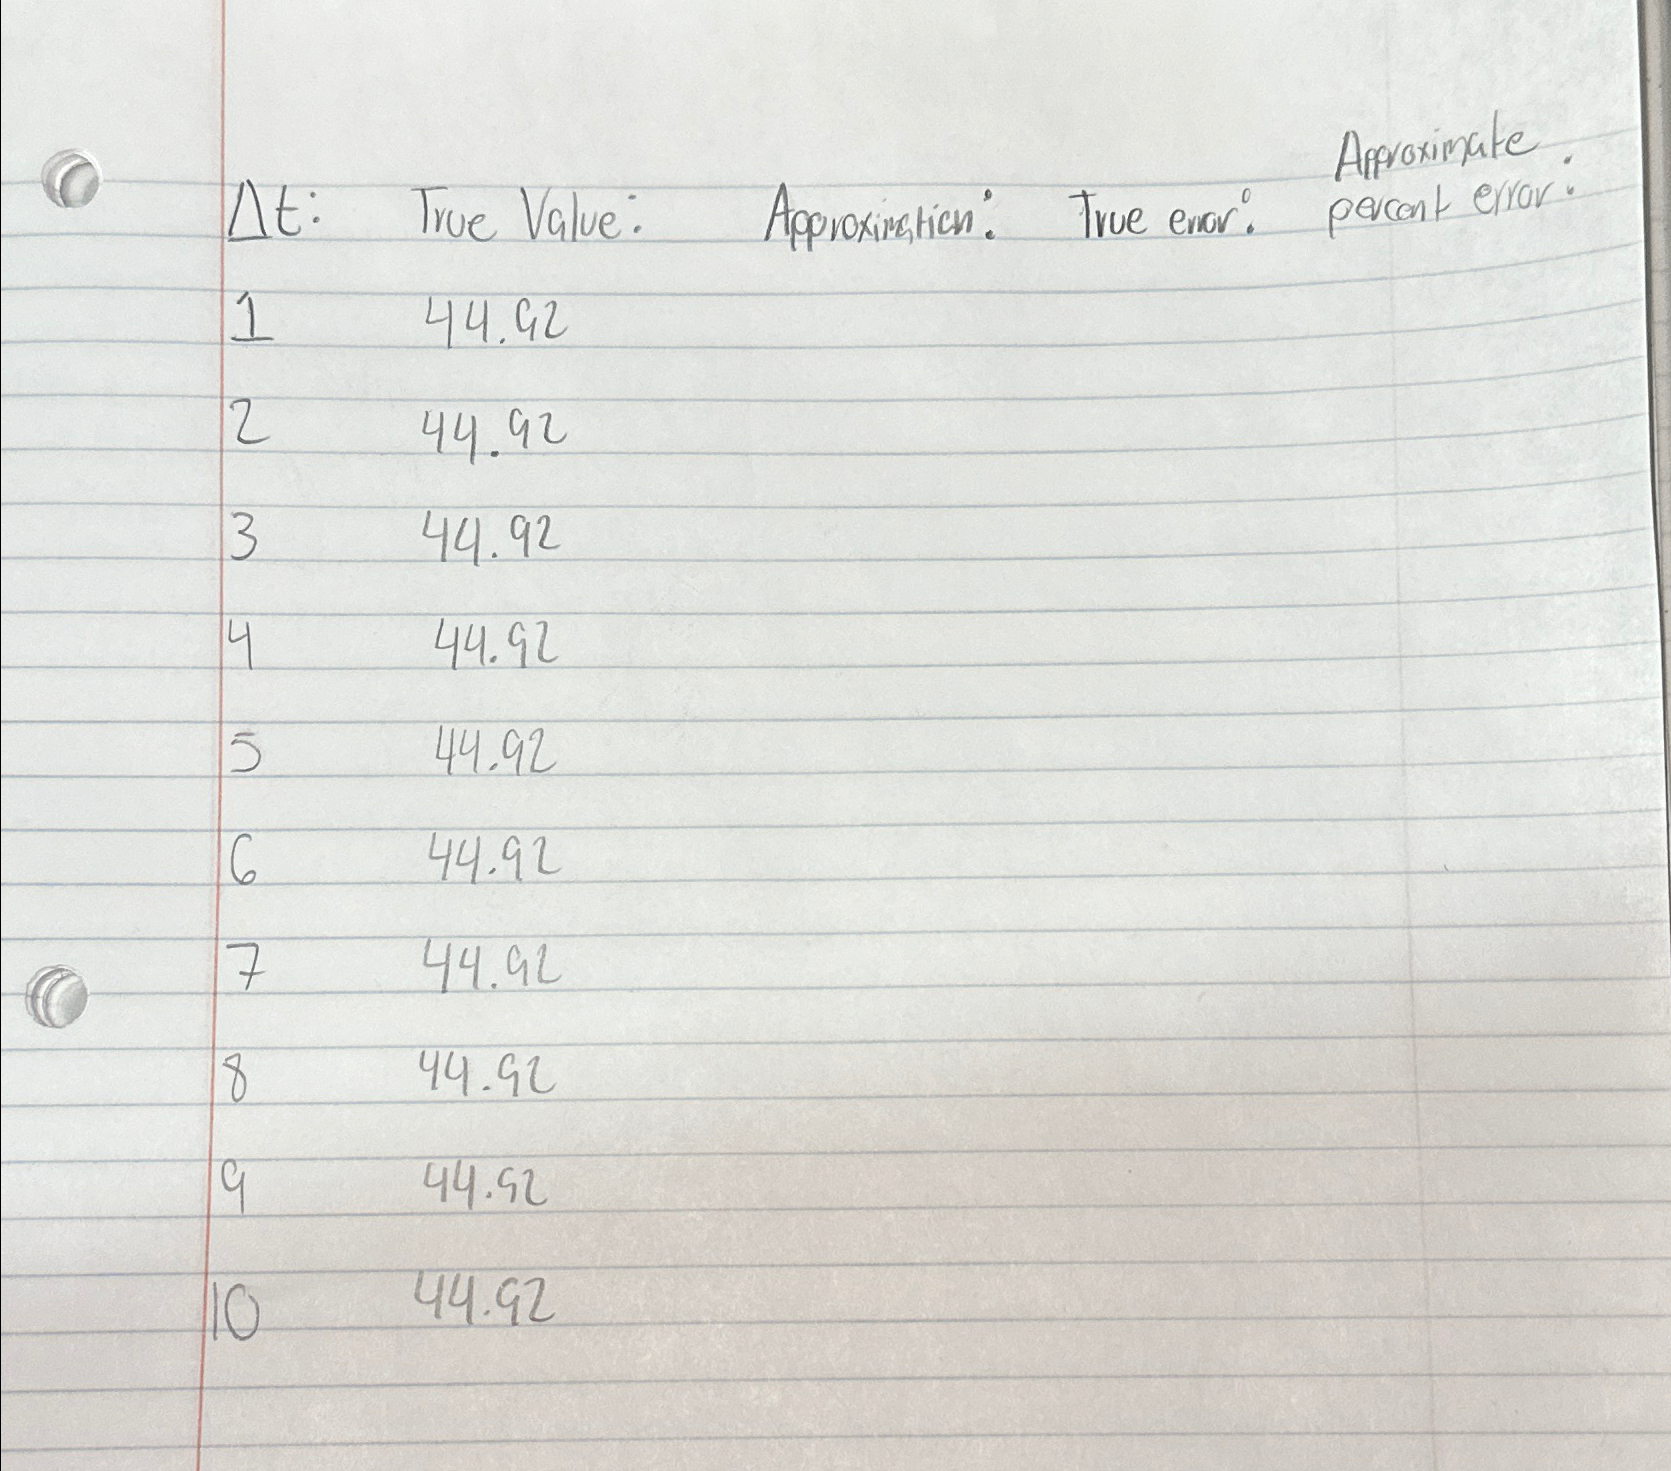 Δt: True Value: Approximation: True error: Approximate percent error:
1 44.92
2 44.92
3 44.92
4 44.92
5 44.92
6 44.92
7 44.92
8 44.92
9 44.92
10 44.92